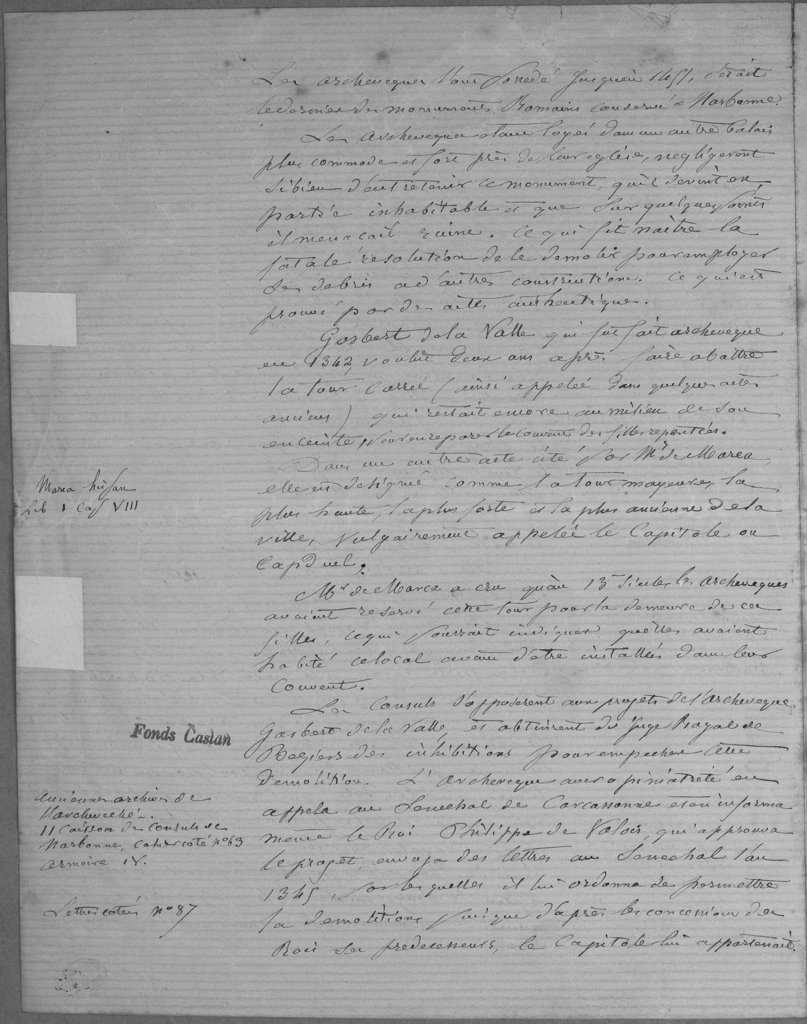 Les archeveques l'ont possedé jusqu'en 1451, c'était
le dernier des monuments Romains conservé à Narbonne.
Les Archeveques étant logés dans un autre Palais
plus commode et fort près de leur eglise, negligerent
si bien d'entretenir ce monument, qu'il devint en
partie inhabitable et que sur quelques points
il menaçait ruine. Ce qui fit naître la
fatale résolution de le demolir pour employer
ses debris a d'autres constructions. Ce qui est
prouvé par des actes authentiques.
Gasbert de la Valle qui fut fait archeveque
en 1342, voulut deux ans après faire abattre
la tour Carrée (ainsi appelée dans quelques actes
anciens) qui restait encore au milieu de son
enceinte, pour en reparer le Couvent des filles repenties.
Dans un autre acte cité par Mr de Marca,
elle est designée comme la tour mayeure, la
plus haute, la plus forte et la plus ancienne de la
ville, Vulgairement appelée le Capitole ou
Capduel.
Marca
Lib I Cap VIII
Mr de Marca a cru qu'au 13e Siecle les Archeveques
avaient reservé cette tour pour la demeure de ces
filles, ce qui pourrait indiquer qu'elles avaient
habité ce local avant d'etre installées dans leur
Couvent.
Les Consuls s'opposerent aux projets de l'archeveque
Gasbert de la Valle et obtinrent du Juge Royal de
Beziers des inhibitions pour empecher cette
demolition. L'Archeveque avec opiniatreté en
appela au Senechal de Carcassonne et en informa
meme le Roi Philippe de Valois, qui approuva
le projet, envoya des lettres au Senechal l'an
1345, par lesquelles il lui ordonna de permettre
la demolition, puisque d'après les concessions des
Rois ses predecesseurs, le Capitole lui appartenait.
Fonds Caslan
Anciennes archives de
l'archeveché.
11 Caisson des Consuls de
Narbonne, cahier coté no 63
armoire IV.
Lettres cotées no 87